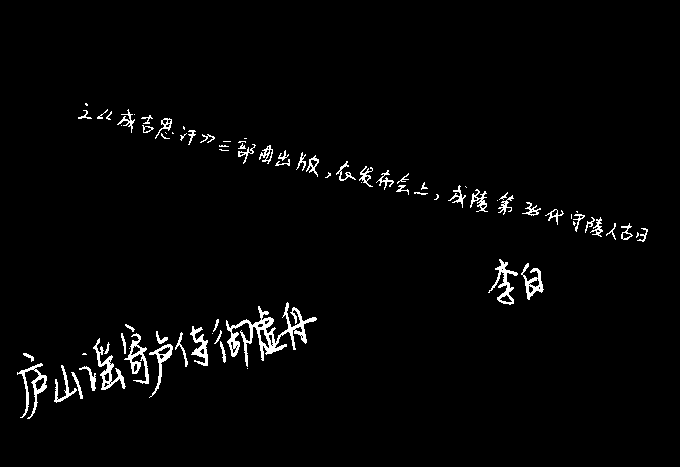 之《成吉思汗》三部曲出版,在发布会上,成陵第36代守陵人古日
李白
庐山谣寄卢侍御虚舟